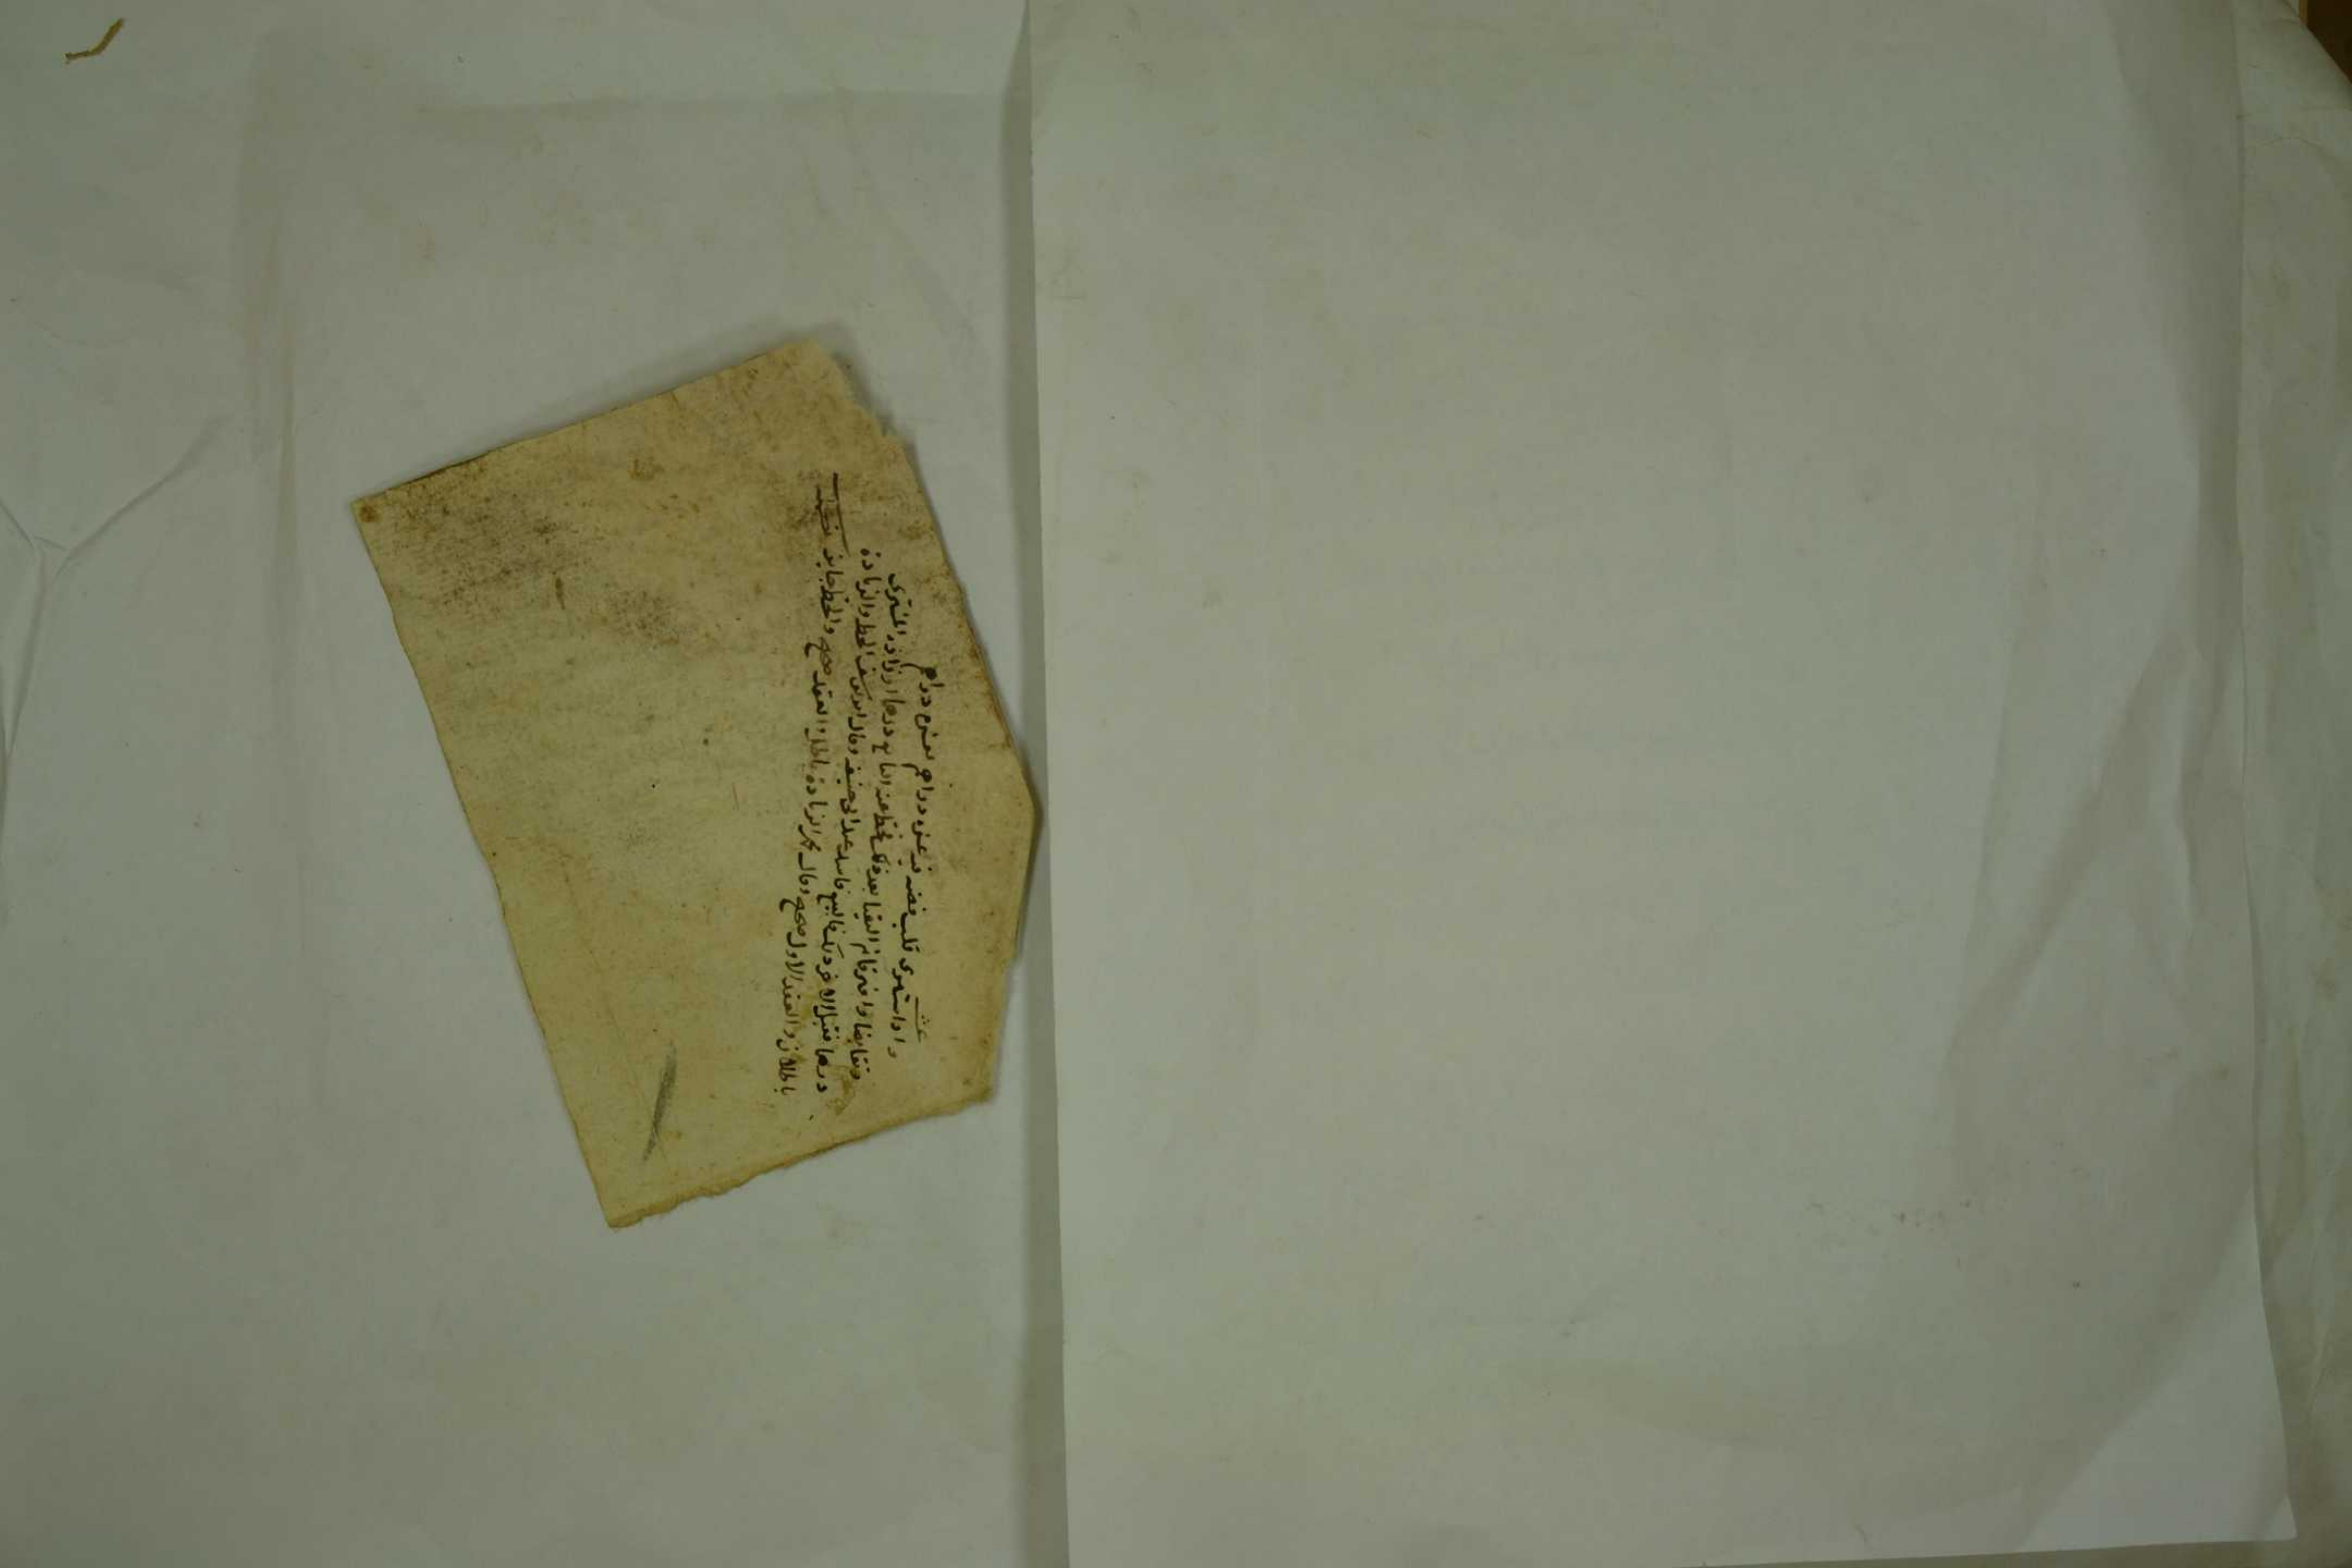 واذا اشترى قلب فضة فيه عشرة دراهم بعشرة دراهم
وتقابضا وافترقا ثم التقيا بعد ذلك فحط عنه البائع درهما او زاده المشترى
درهما فقبل الاخر ذلك فالبيع فاسد عند ابى حنيفة وقال ابو يوسف الحط والزيادة
باطلان والعقد الاول صحيح وقال محمد الزيادة باطلة والعقد صحيح والحط جايز